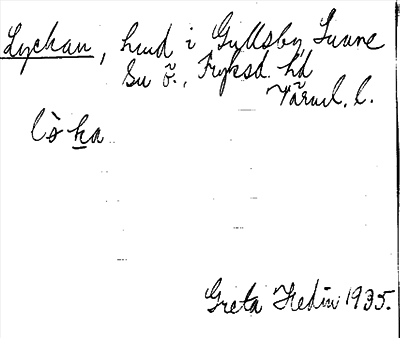 Lyckan, hmd i Gullsby, Sunne
Su õ., Fryksd. hd
Värml. l.
lò̀ka
Greta Hedin 1935.